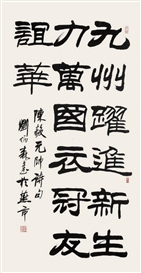 九州躍進新生
力萬國衣冠友
誼華
陳毅元帥詩句
劉炳森書於燕市